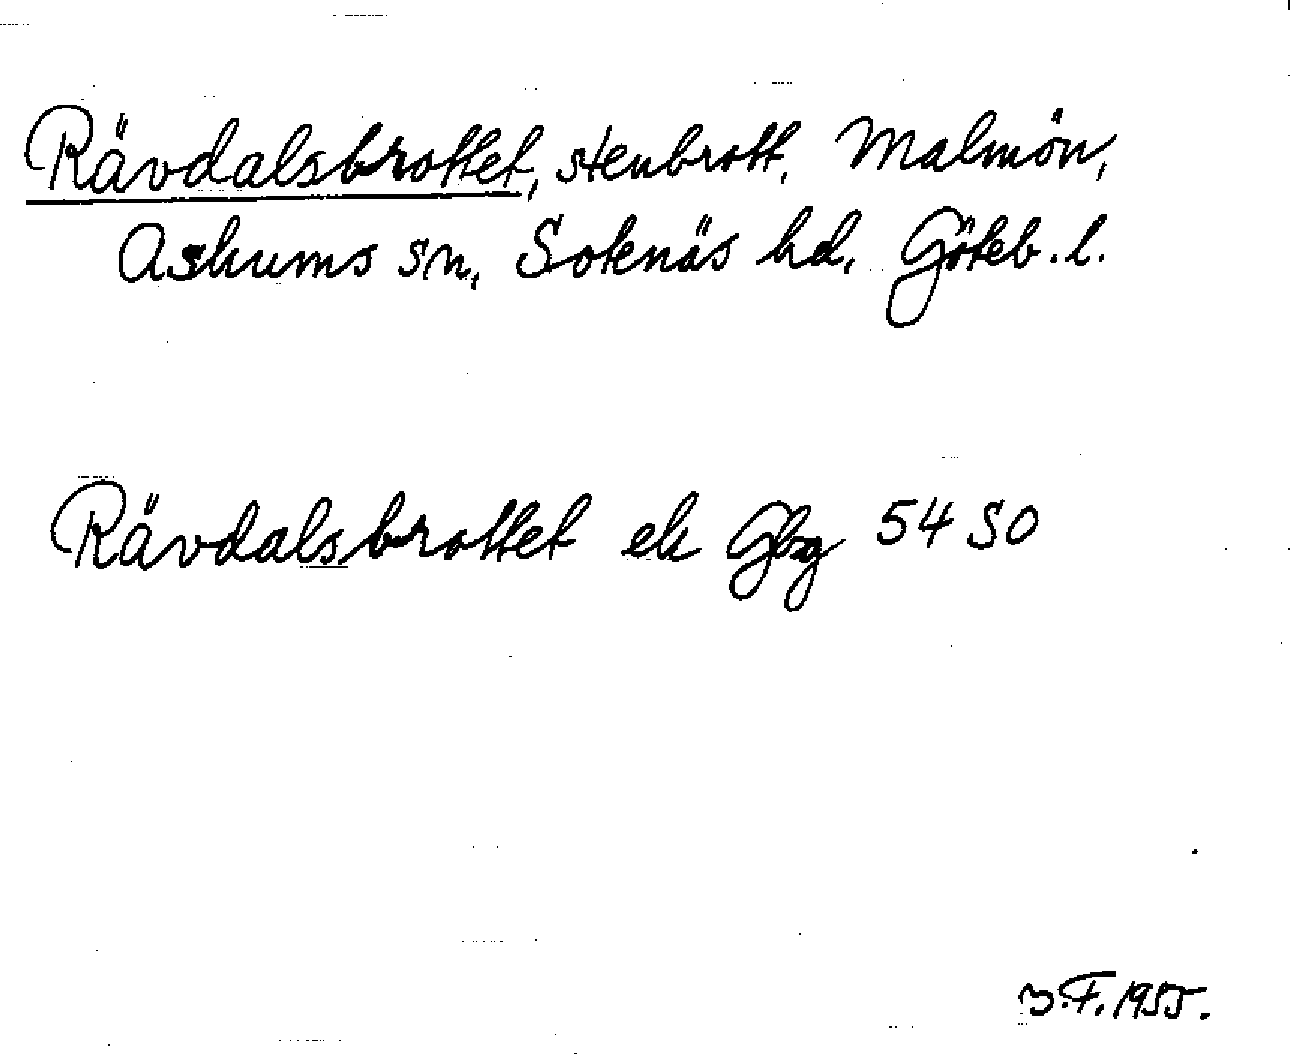 Rävdalsbrottet, stenbrott, Malmön,
Askums sn, Sotenäs hd, Göteb. l.
Rävdalsbrottet ek Gbg 54 SO
B.F. 1955.